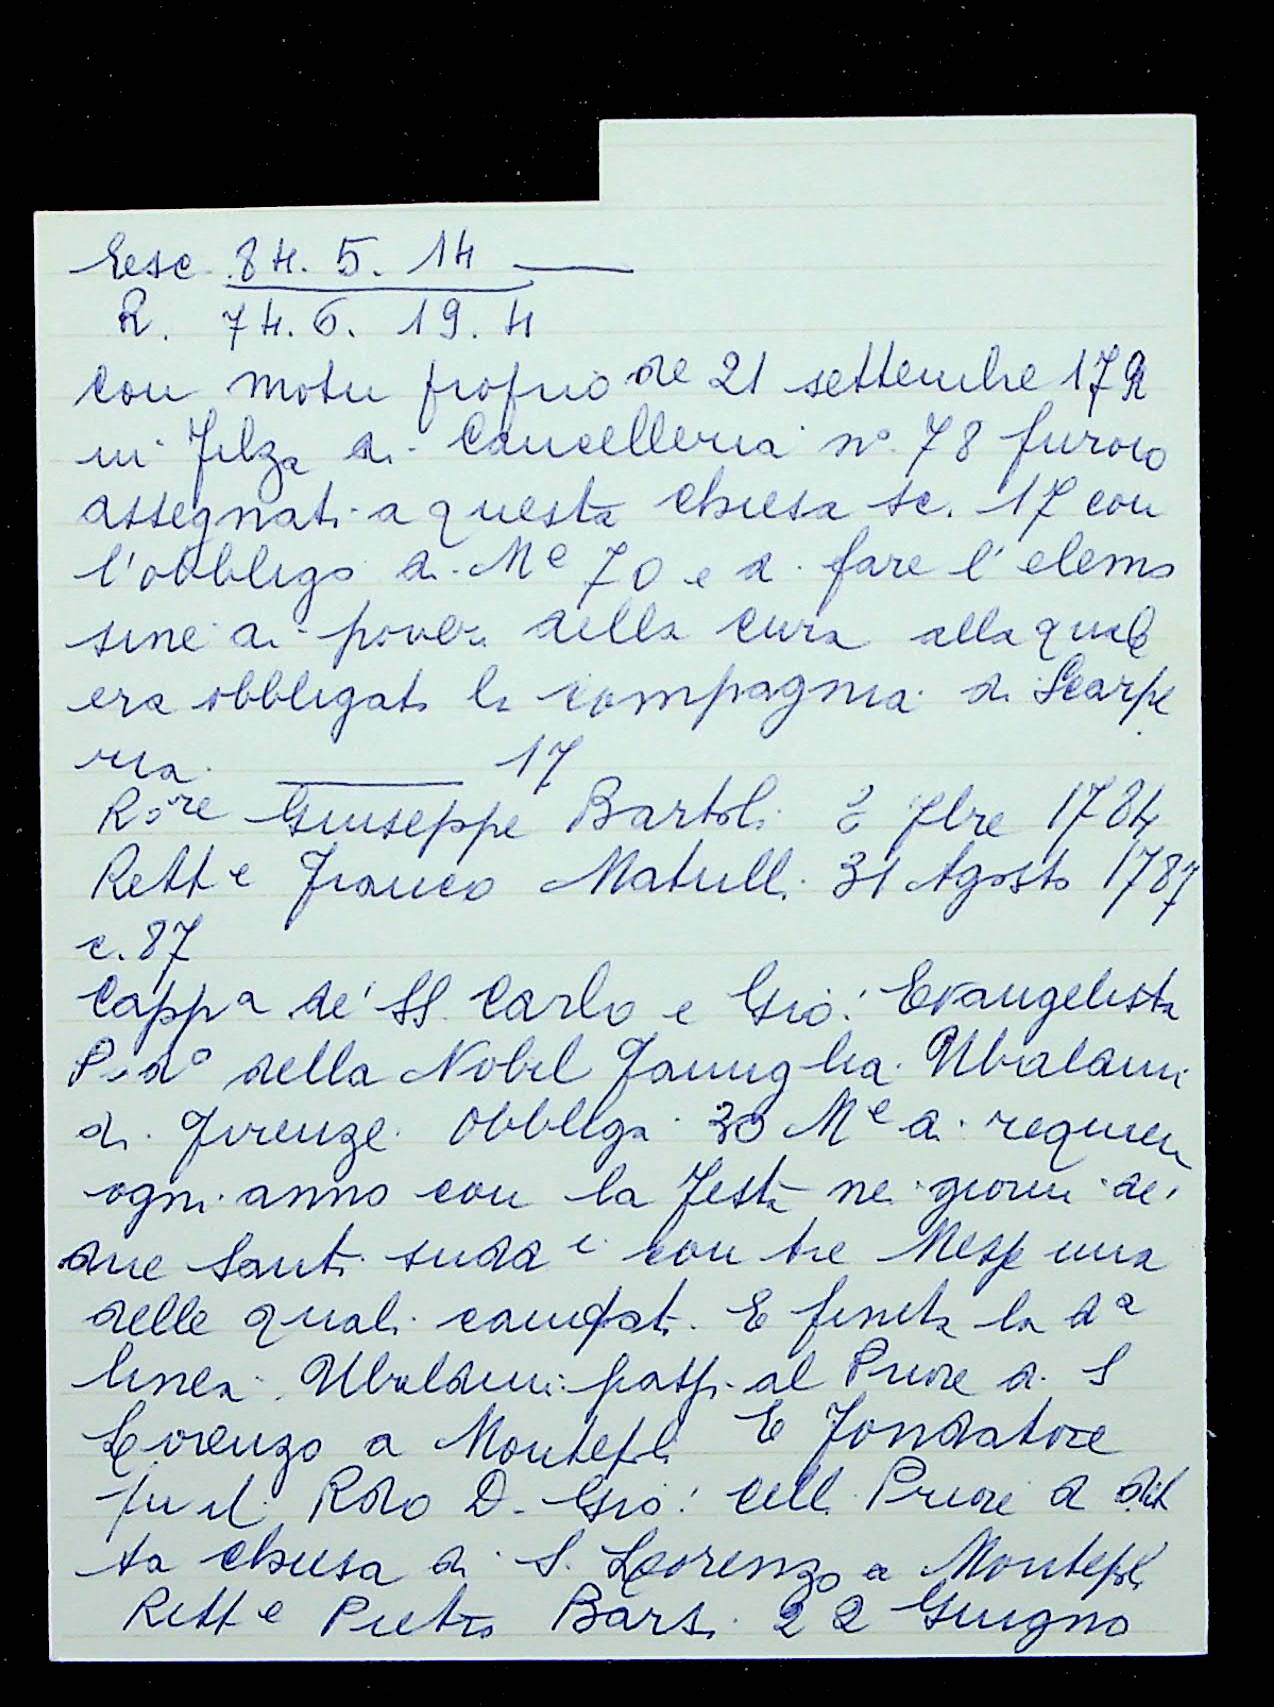 Sesc 84. 5. 14 ——
R. 74. 6. 19. 4
con motu proprio de 21 settembre 179
in Filza di Cancelleria n° 78 furoro
assegnati a questa chiesa sc. 17 con
l'obbligo di Me 70 e di fare l'elemo
sine ai poveri della cura alla quale
era obbligata la compagnia di Scarpe
ria. —— 17
Rore Giuseppe Bartoli 2 7bre 1784
Rett e Franco Matulli 31 Agosto 1787
c. 87
Cappa de' SS. Carlo e Gio: Evangelista
P.do della Nobil Famiglia Ubaldini
di Firenze Obbligo 30 Me di requiem
ogni anno con la Festa ne giorni de'
due Santi sudd i con tre Messe una
delle quali cantata. E finita la da
linea Ubaldini passi al Priore di S
Lorenzo a Montepli E Fondatore
fu il Rdo D. Gio: Celli Priore di det
ta chiesa di S. Lorenzo a Montepli
Rett e Pietro Barsi 22 Giugno